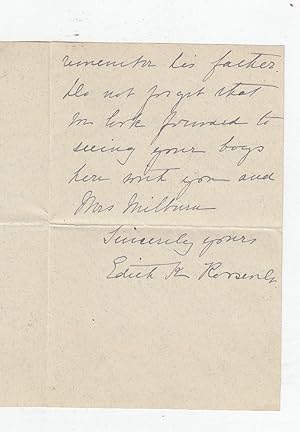 remember his father.
Do not forget that
we look forward to
seeing your boys
here with you and
Mrs Milburn
Sincerely yours
Edith K Roosevelt